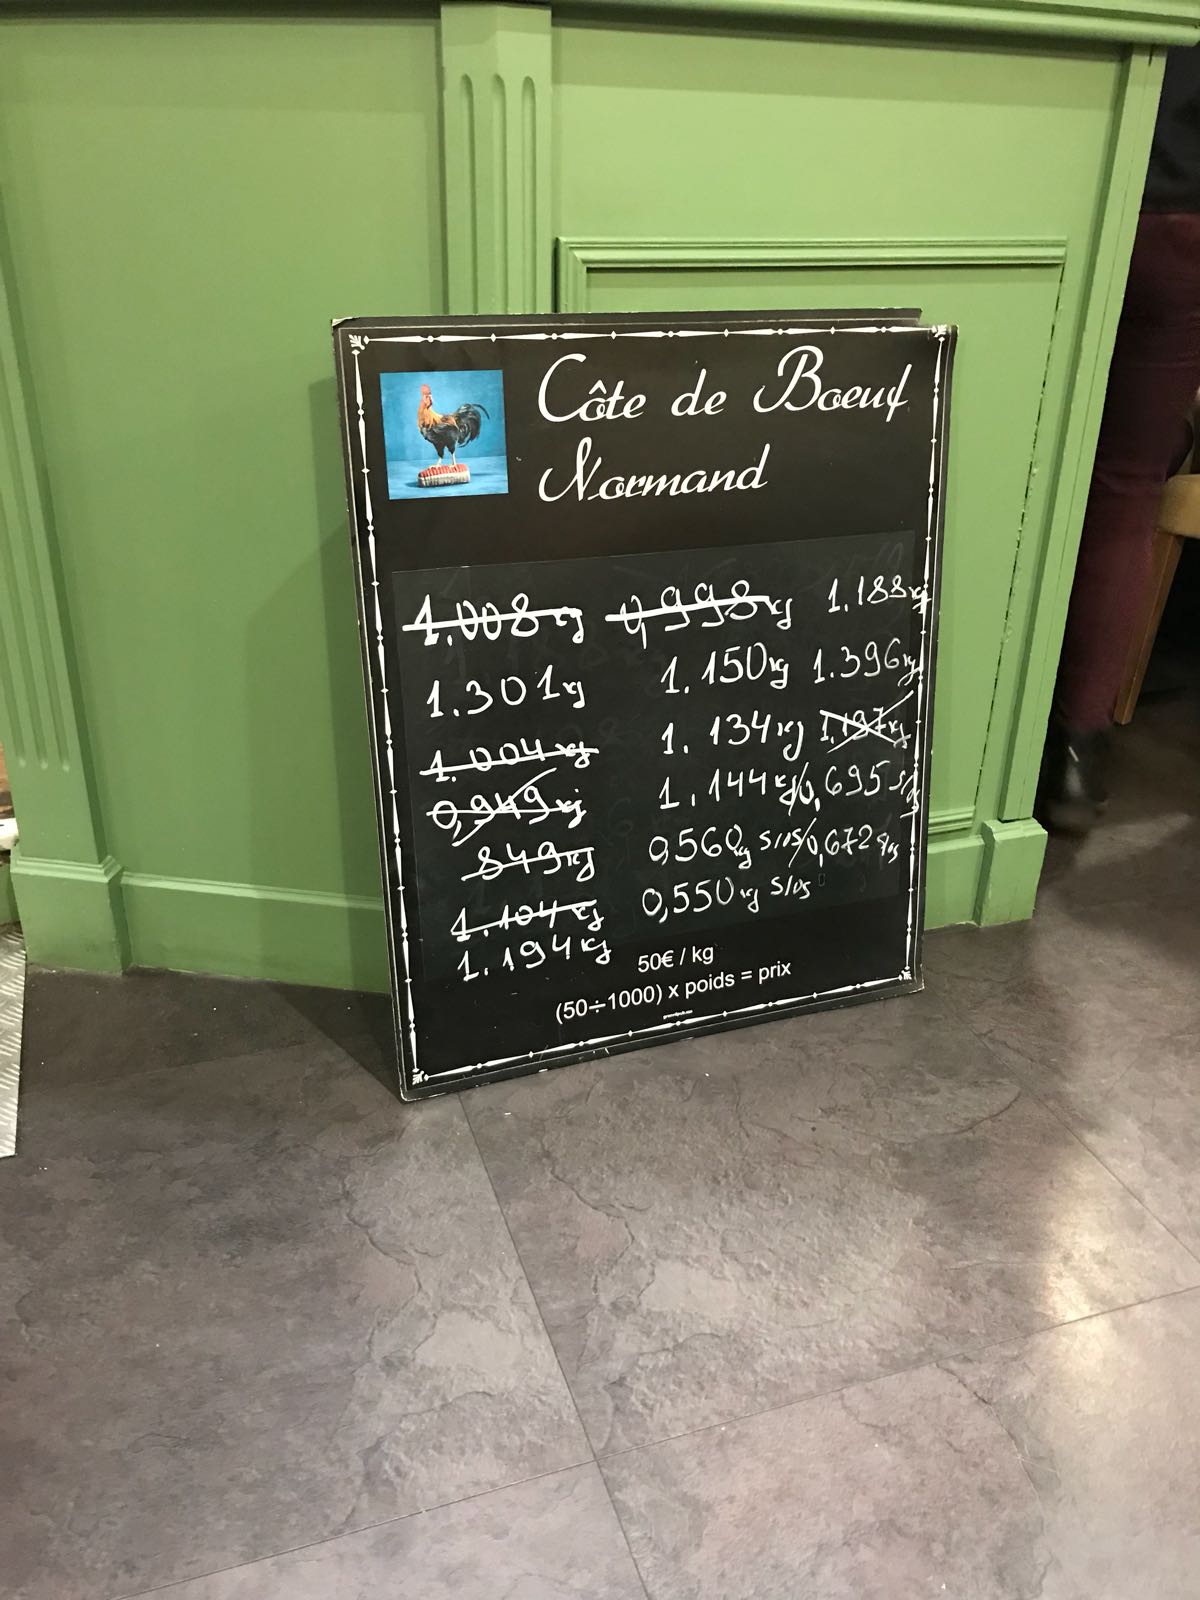 Côte de Boeuf
Normand
1.008 kg 0,998 kg 1.188 kg
1.301 kg 1.150 kg 1.396 kg
1.004 kg 1.134 kg 1.197 kg
0,949 kg 1.144 kg/0,695 s/os
849 kg 0,560 kg s/os/0,672 s/os
1.104 kg 0,550 kg s/os
1.194 kg
50€ / kg
(50÷1000) x poids = prix